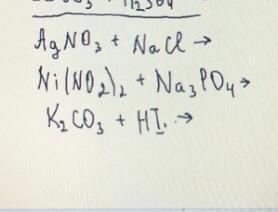 AgNO₃ + NaCl →
Ni(NO₂)₂ + Na₃PO₄→
K₂CO₃ + HI. →